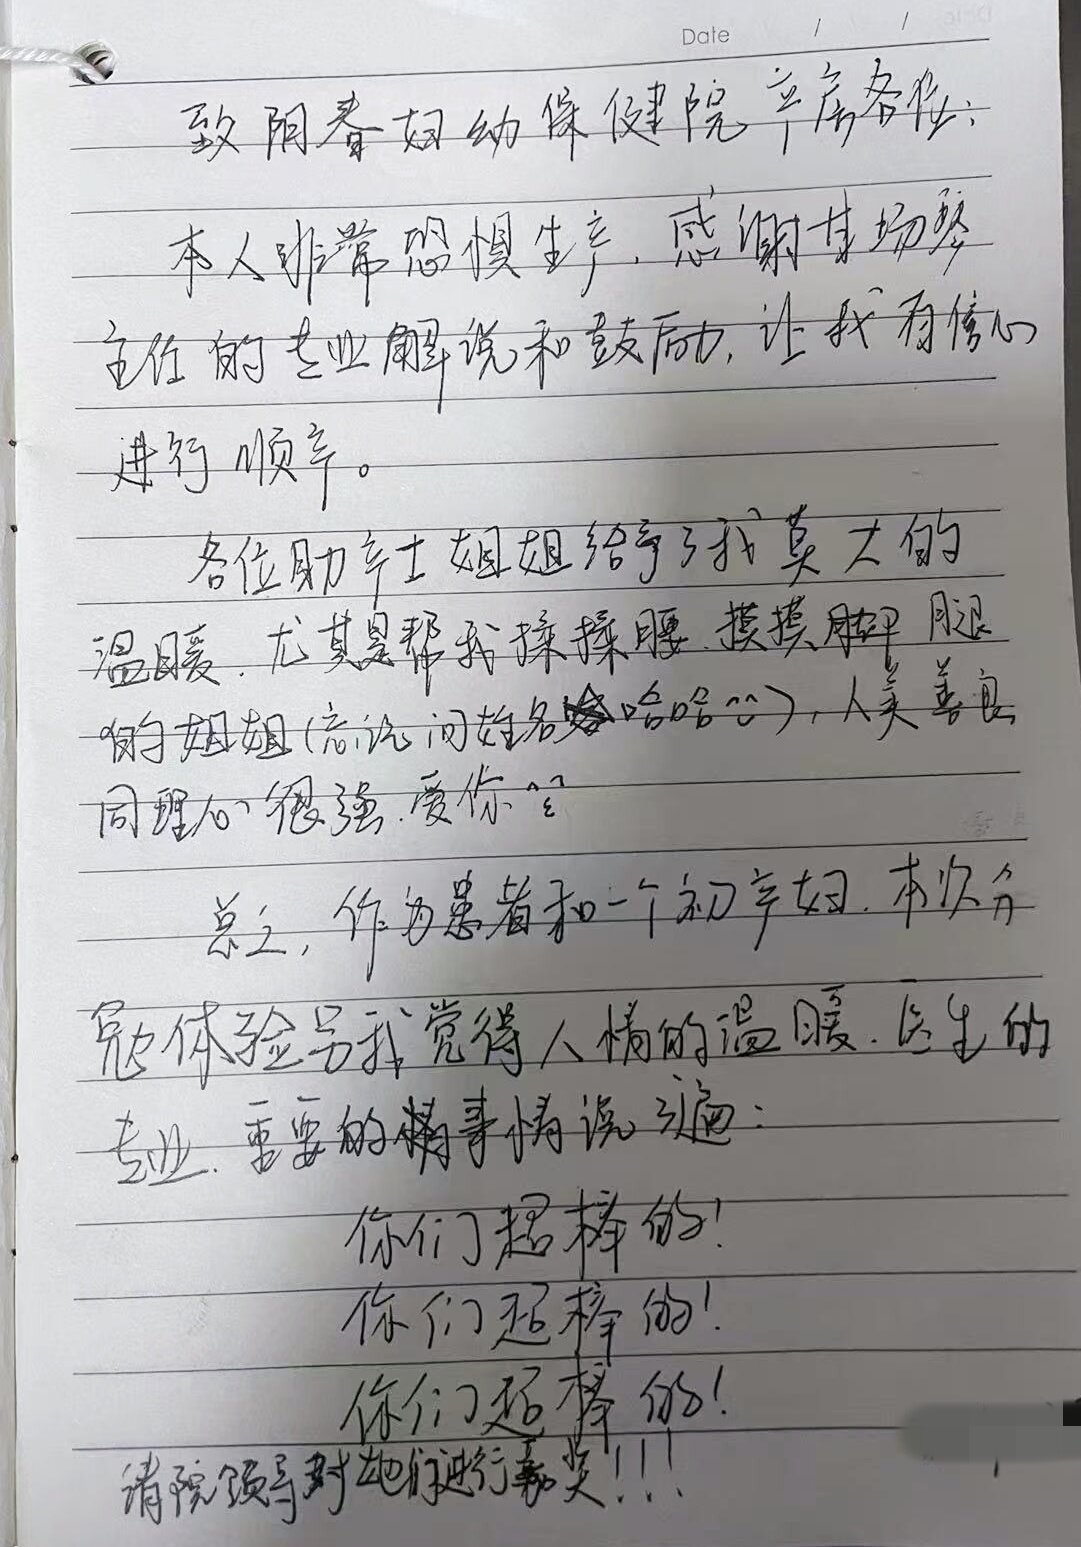 Date / /
致阳春妇幼保健院产房各位：
本人非常恐惧生产，感谢甘场琴
主任的专业解说和鼓励，让我有信心
进行顺产。
各位助产士姐姐给予了我莫大的
温暖，尤其是帮我揉揉腰，摸摸脚腿
的姐姐（忘记问姓名哈哈），人美善良
同理心很强，爱你
总之，作为患者和一个初产妇，本次分
娩体验另我觉得人情的温暖，医生的
专业，重要的事情说3遍：
你们超棒的！
你们超棒的！
你们超棒的！
请院领导对她们进行嘉奖！！！